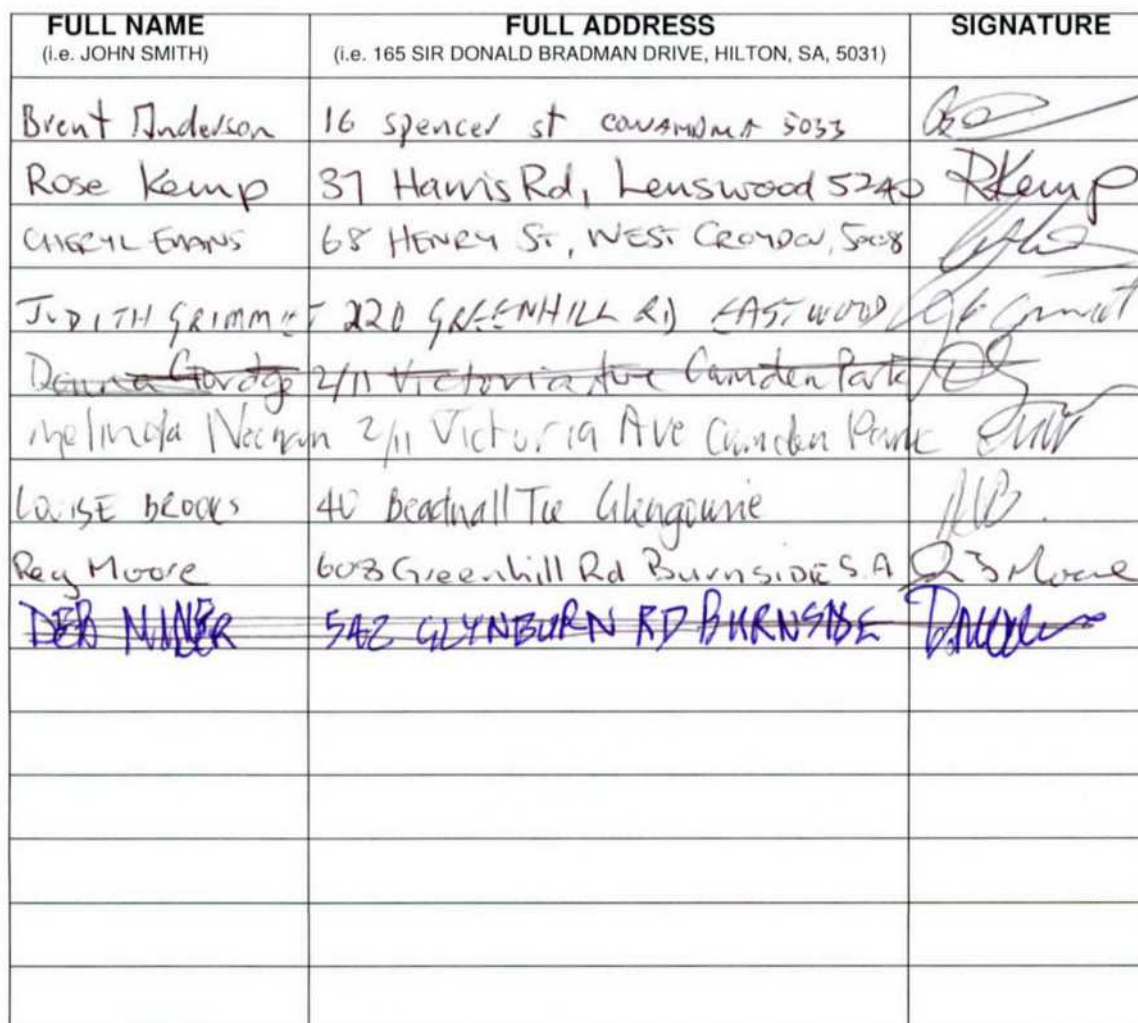 FULL NAME FULL ADDRESS SIGNATURE
(i.e. JOHN SMITH) (i.e. 165 SIR DONALD BRADMAN DRIVE, HILTON, SA, 5031)
Brent Anderson 16 Spencer st COWANDILLA 5033
Rose Kemp 37 Harris Rd, Lenswood 5240 RKemp
CHERYL EVANS 68 HENRY ST, WEST CROYDON, 5008
JUDITH GRIMMET 220 GREENHILL RD EASTWOOD
2/11 Victoria Ave Camden Park
Melinda 2/11 Victoria Ave Camden Park
LOUISE BROOKS 40 Beadnall Tce Glengowrie
Reg Moore 608 Greenhill Rd BurnSIDE S.A Moore
DEB 542 GLYNBURN RD BURNSIDE